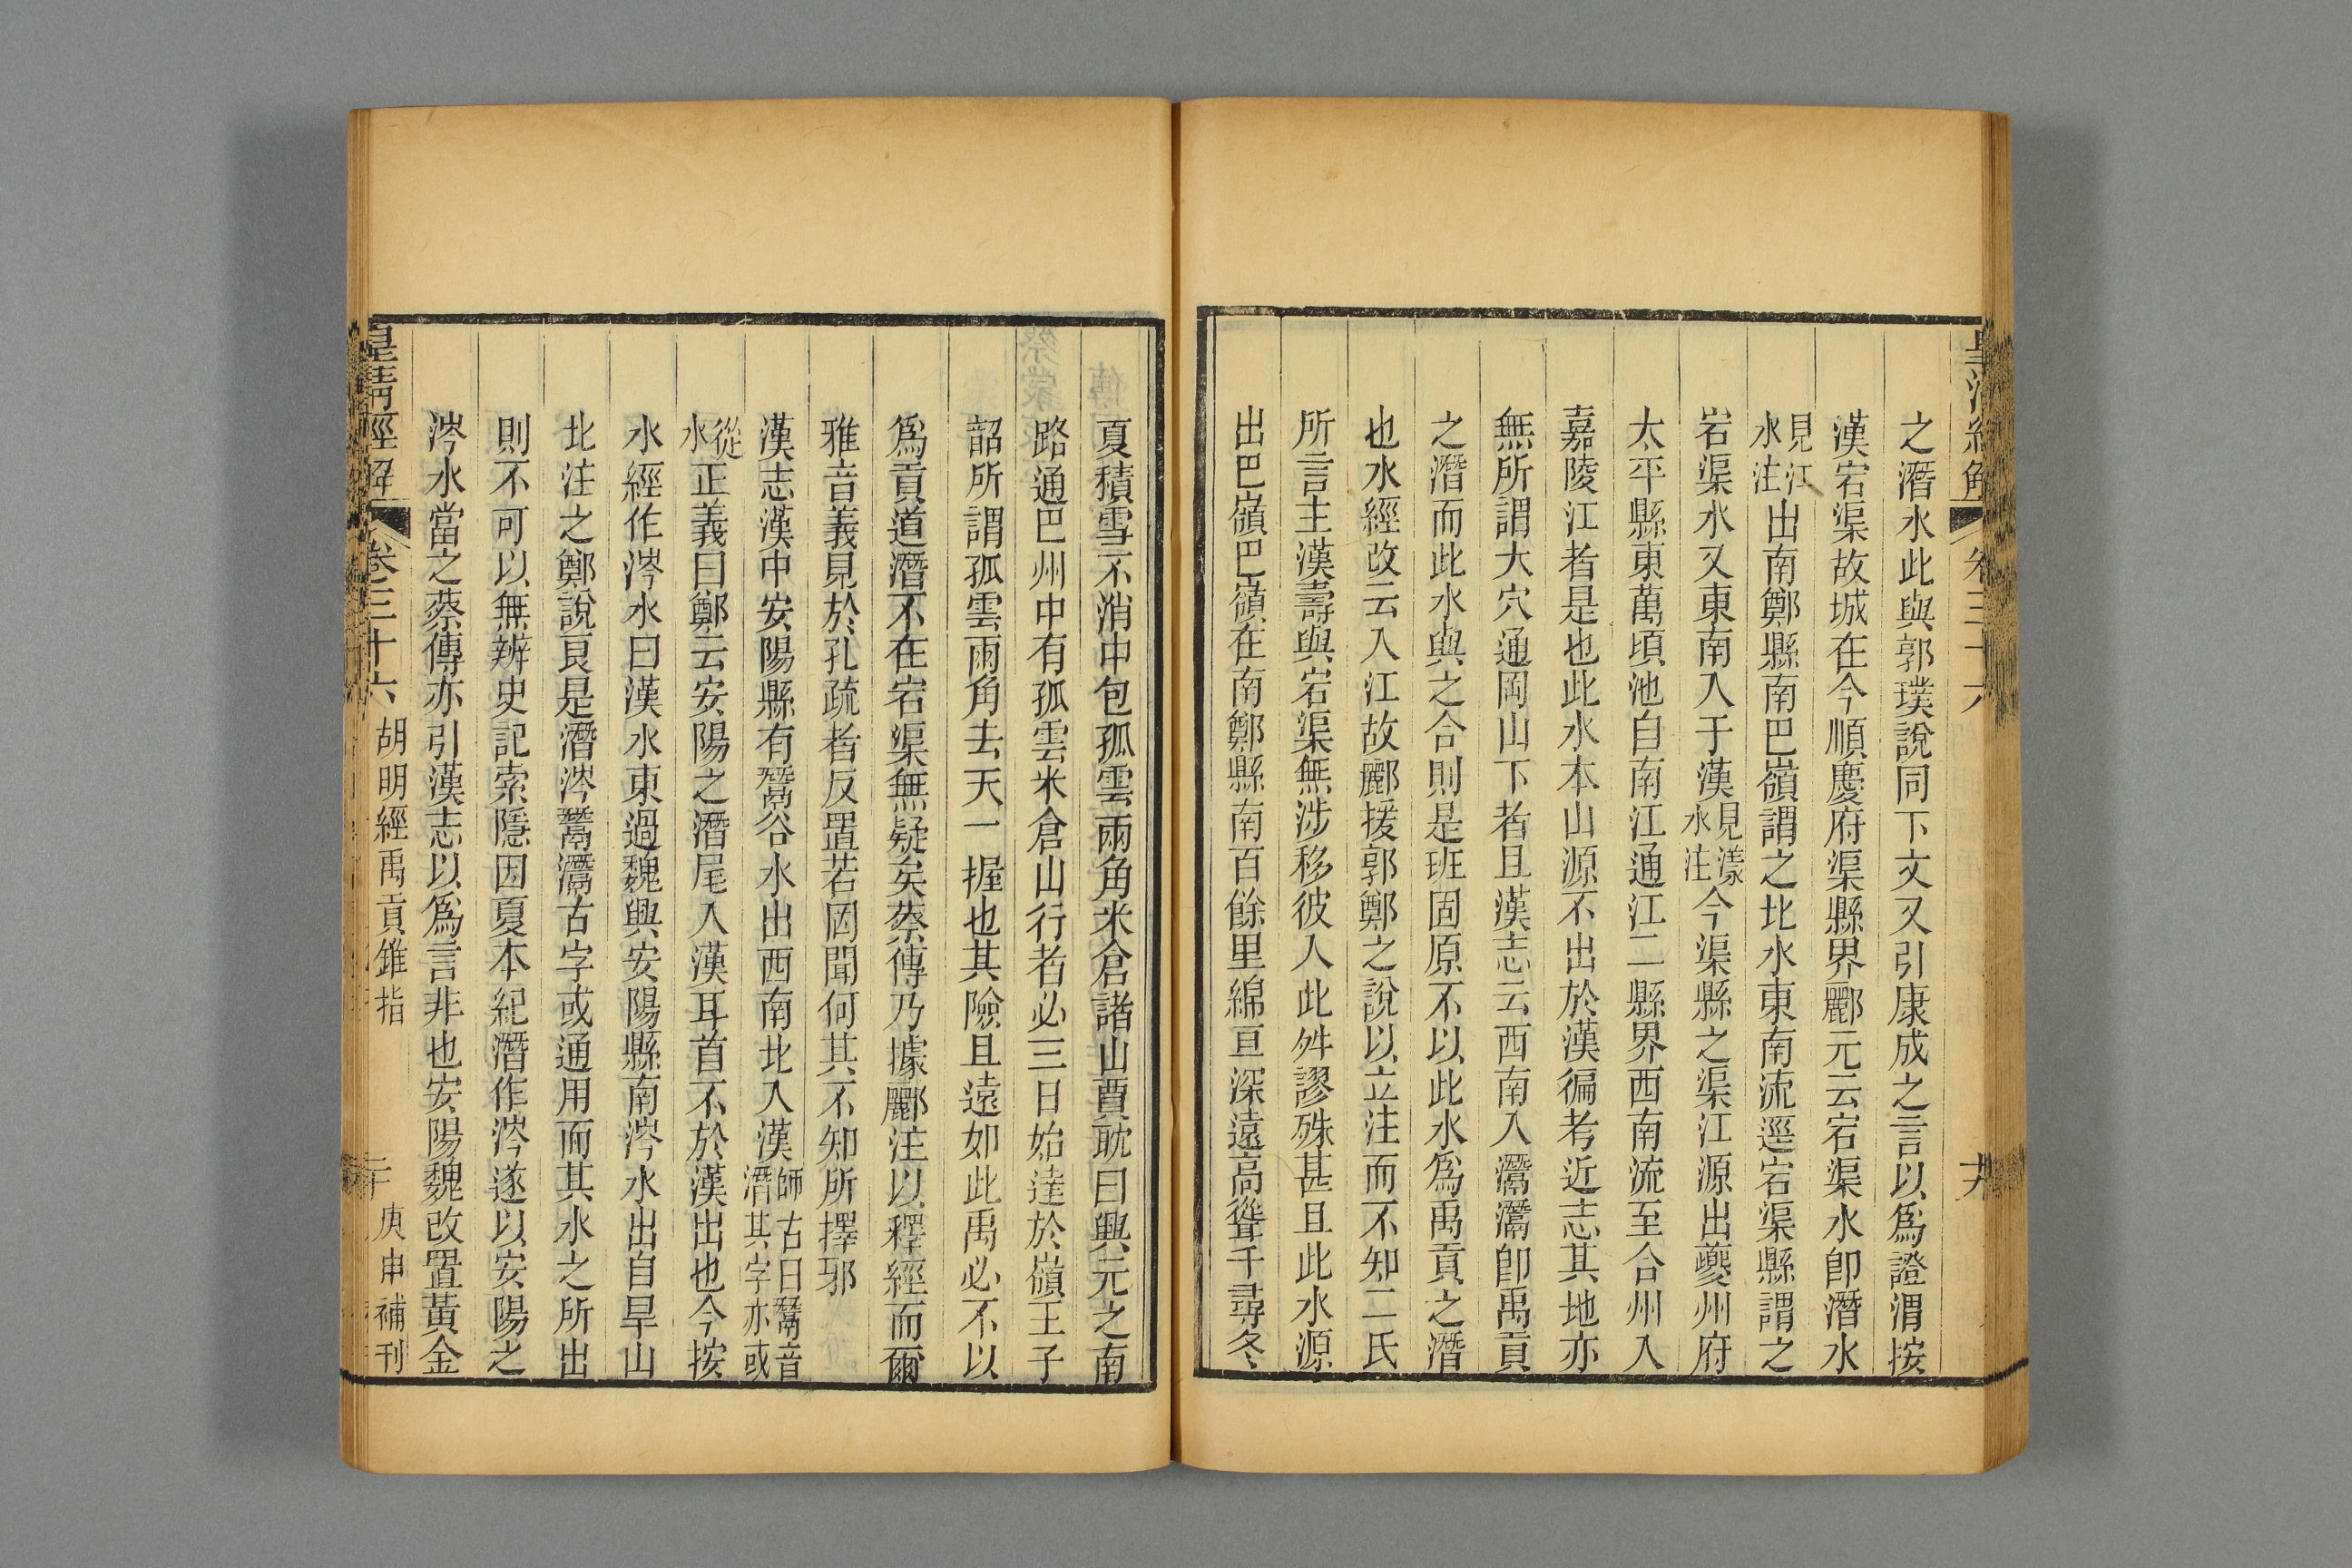 皇清經解
卷三十六
之潛水此與郭璞說同下文又引康成之言以爲證渭按
漢宕渠故城在今順慶府渠縣界酈元云宕渠水卽潛水
見江水注出南鄭縣南巴嶺謂之北水東南流逕宕渠縣謂之
宕渠水又東南入于漢見漾水注今渠縣之渠江源出夔州府
太平縣東萬頃池自南江通江二縣界西南流至合州入
嘉陵江者是也此水本山源不出於漢徧考近志其地亦
無所謂大穴通岡山下者且漢志云西南入灊灊卽禹貢
之潛而此水與之合則是班固原不以此水爲禹貢之潛
也水經改云入江故酈援郭鄭之說以立注而不知二氏
所言主漢壽與宕渠無涉移彼入此舛謬殊甚且此水源
出巴嶺巴嶺在南鄭縣南百餘里綿亘深遠高聳千尋冬
夏積雪不消中包孤雲兩角米倉諸山賈耽曰興元之南
路通巴州中有孤雲米倉山行者必三日始達於嶺王子
韶所謂孤雲兩角去天一握也其險且遠如此禹必不以
爲貢道潛不在宕渠無疑矣蔡傳乃據酈注以釋經而爾
雅音義見於孔疏者反置若罔聞何其不知所擇邪
漢志漢中安陽縣有鬵谷水出西南北入漢師古曰鬵音潛其字亦或
從水正義曰鄭云安陽之潛尾入漢耳首不於漢出也今按
水經作涔水曰漢水東過魏興安陽縣南涔水出自旱山
北注之鄭說良是潛涔鬵灊古字或通用而其水之所出
則不可以無辨史記索隱因夏本紀潛作涔遂以安陽之
涔水當之蔡傳亦引漢志以爲言非也安陽魏改置黃金
皇清經解
卷三十六
胡明經禹貢錐指
庚申補刊